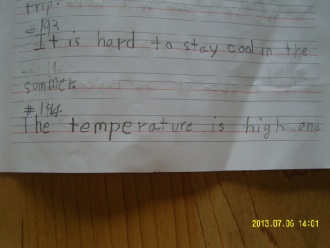 trip.
#193
It is hard to stay cool in the
summer.
#194
The temperature is high and
2013.07.06 14:01